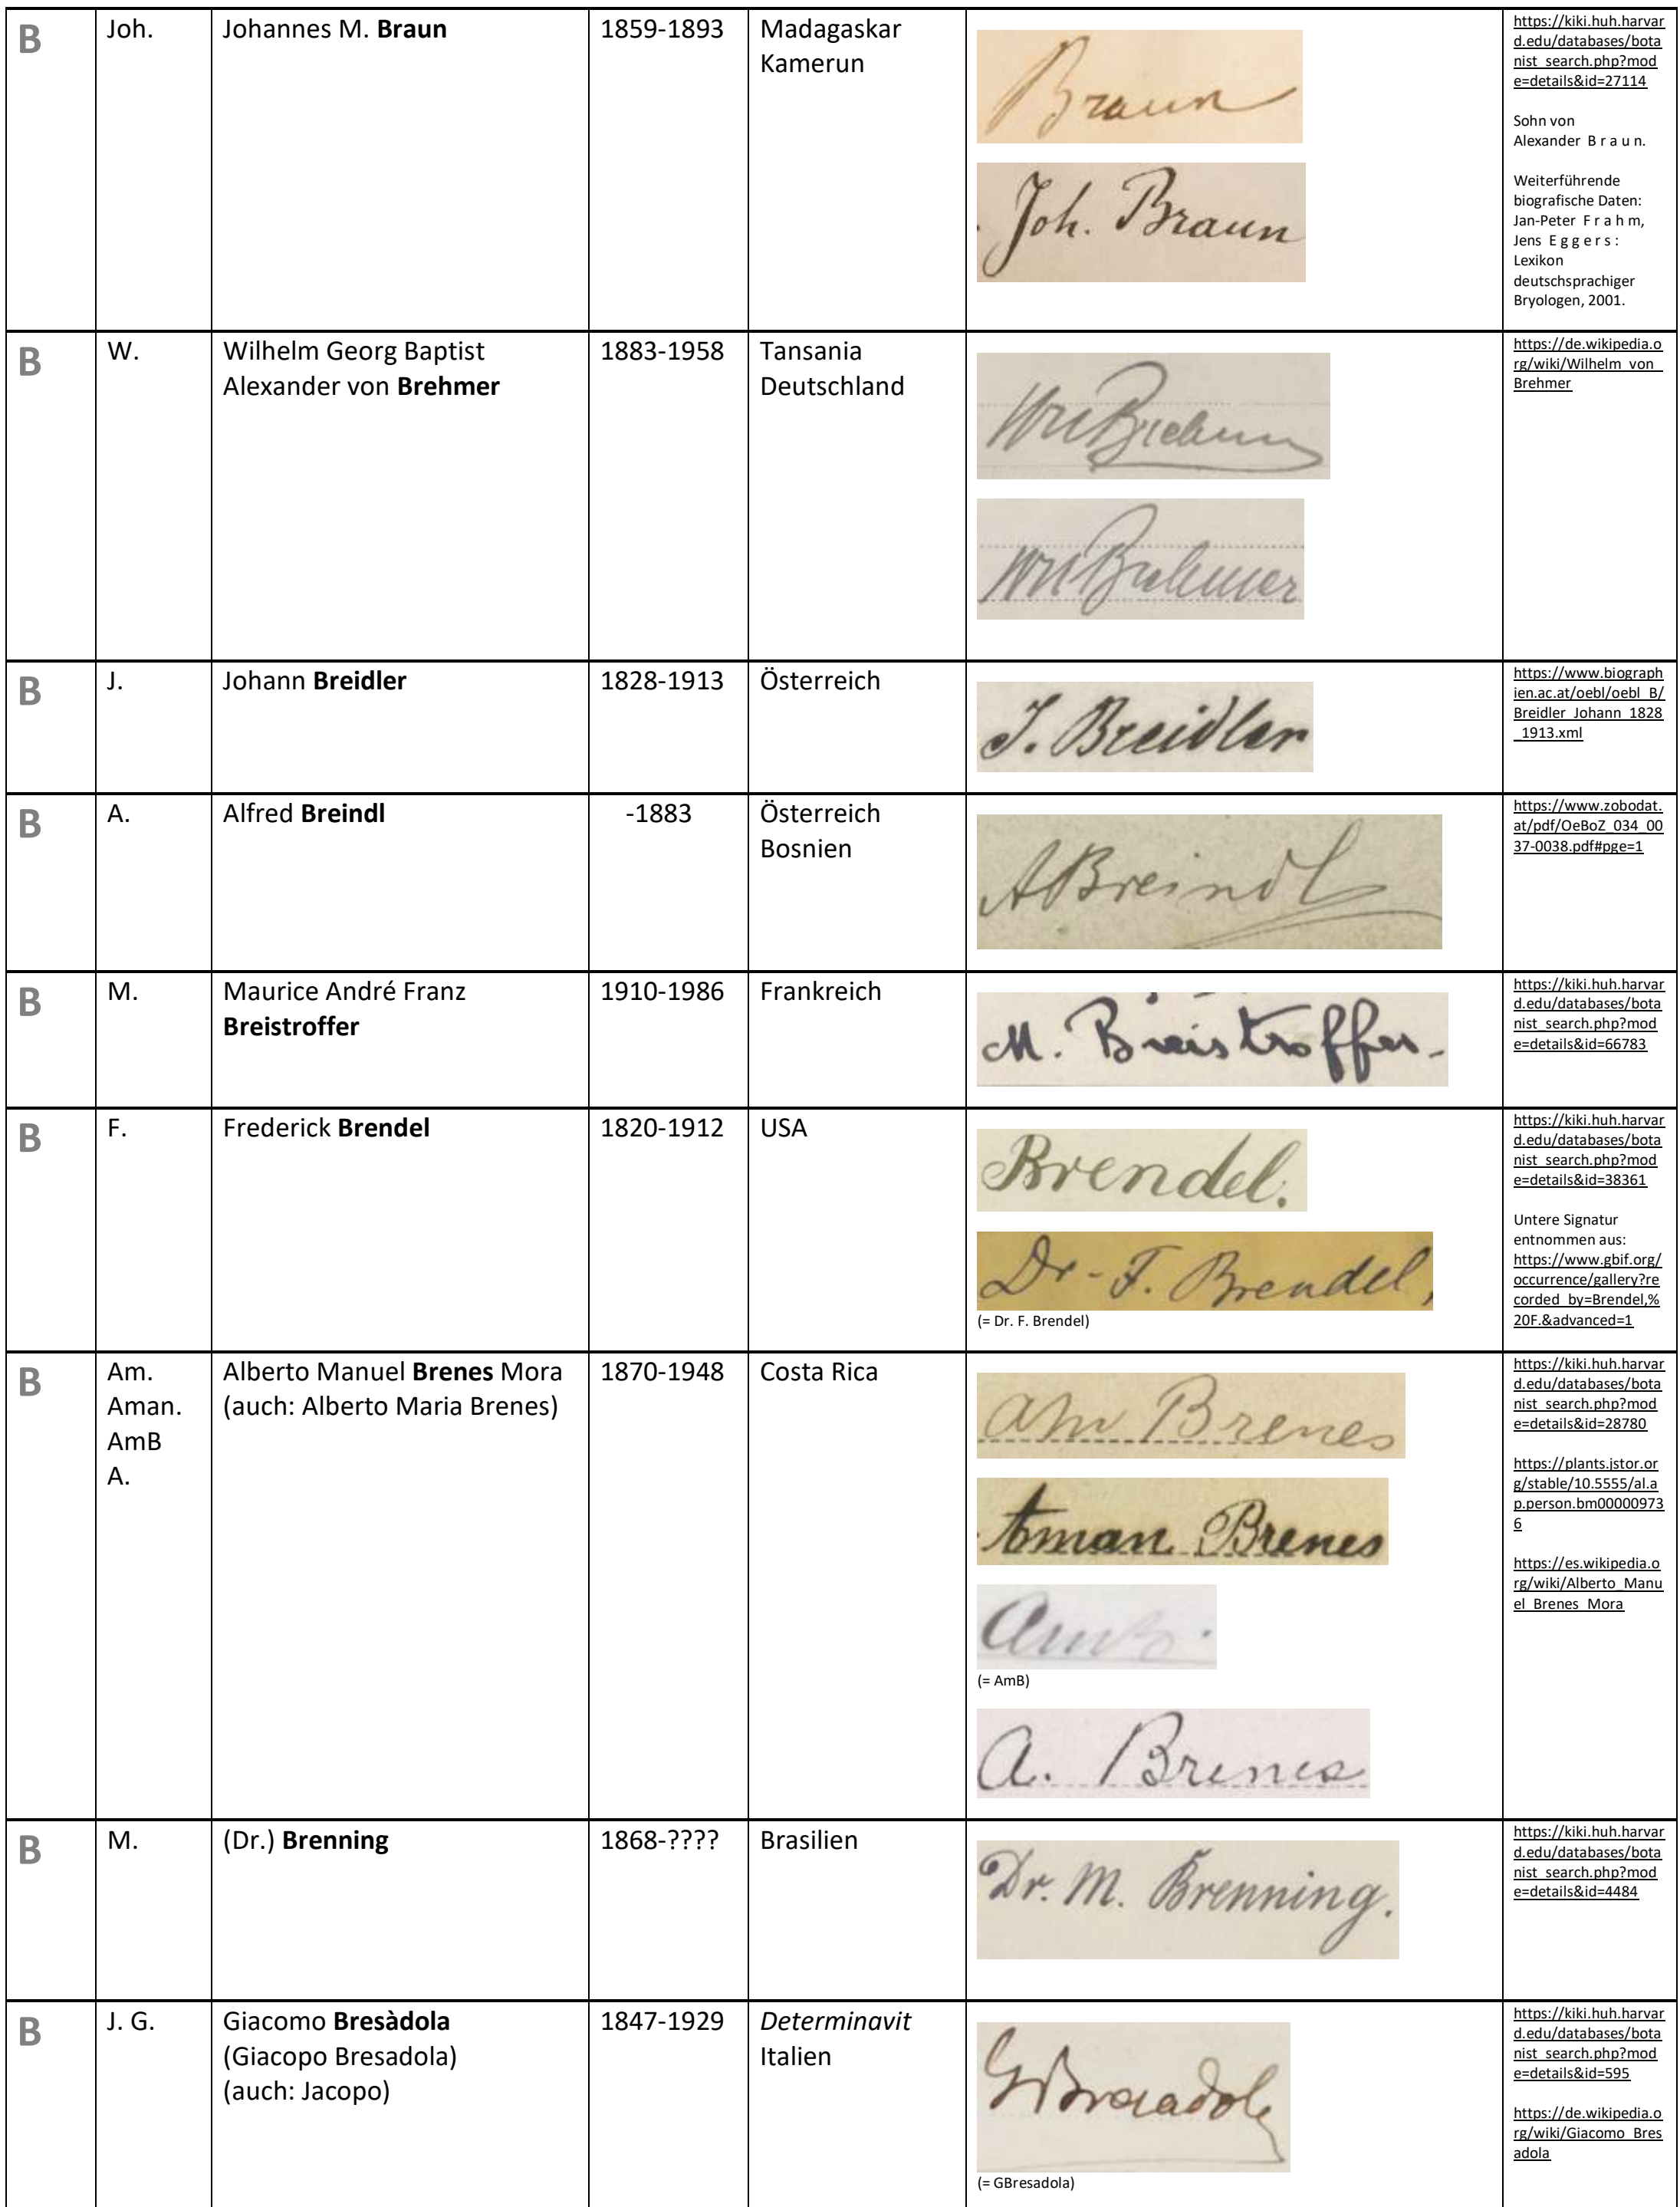 B
Joh.
Johannes M. Braun
1859-1893
Madagaskar
Kamerun
Braun
Joh. Braun
https://kiki.huh.harvar
d.edu/databases/bota
nist_search.php?mod
e=details&id=27114
Sohn von
Alexander B r a u n.
Weiterführende
biografische Daten:
Jan-Peter F r a h m,
Jens E g g e r s :
Lexikon
deutschsprachiger
Bryologen, 2001.
B
W.
Wilhelm Georg Baptist
Alexander von Brehmer
1883-1958
Tansania
Deutschland
https://de.wikipedia.o
rg/wiki/Wilhelm_von_
Brehmer
B
J.
Johann Breidler
1828-1913
Österreich
J. Breidler
https://www.biograph
ien.ac.at/oebl/oebl_B/
Breidler_Johann_1828
_1913.xml
B
A.
Alfred Breindl
-1883
Österreich
Bosnien
ABreindl
https://www.zobodat.
at/pdf/OeBoZ_034_00
37-0038.pdf#pge=1
B
M.
Maurice André Franz
Breistroffer
1910-1986
Frankreich
M. Breistroffer.
https://kiki.huh.harvar
d.edu/databases/bota
nist_search.php?mod
e=details&id=66783
B
F.
Frederick Brendel
1820-1912
USA
Brendel.
Dr - F. Brendel,
(= Dr. F. Brendel)
https://kiki.huh.harvar
d.edu/databases/bota
nist_search.php?mod
e=details&id=38361
Untere Signatur
entnommen aus:
https://www.gbif.org/
occurrence/gallery?re
corded_by=Brendel,%
20F.&advanced=1
B
Am.
Aman.
AmB
A.
Alberto Manuel Brenes Mora
(auch: Alberto Maria Brenes)
1870-1948
Costa Rica
Am Brenes
Aman Brenes
AmB.
(= AmB)
A. Brenes
https://kiki.huh.harvar
d.edu/databases/bota
nist_search.php?mod
e=details&id=28780
https://plants.jstor.or
g/stable/10.5555/al.a
p.person.bm00000973
6
https://es.wikipedia.o
rg/wiki/Alberto_Manu
el_Brenes_Mora
B
M.
(Dr.) Brenning
1868-????
Brasilien
Dr. M. Brenning.
https://kiki.huh.harvar
d.edu/databases/bota
nist_search.php?mod
e=details&id=4484
B
J. G.
Giacomo Bresàdola
(Giacopo Bresadola)
(auch: Jacopo)
1847-1929
Determinavit
Italien
GBresadola
(= GBresadola)
https://kiki.huh.harvar
d.edu/databases/bota
nist_search.php?mod
e=details&id=595
https://de.wikipedia.o
rg/wiki/Giacomo_Bres
adola